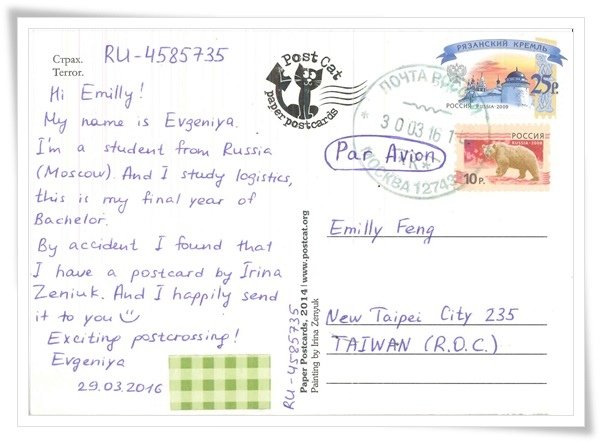 Страх.
Terror.
RU-4585735
Hi Emilly!
My name is Evgeniya.
I'm a student from Russia
(Moscow). And I study logistics,
this is my final year of
Bachelor.
By accident I found that
I have a postcard by Irina
Zeniuk. And I happily send
it to you
Exciting postcrossing!
Evgeniya
29.03.2016
Post Cat
paper postcards
RU-4585735
Paper Postcards, 2014 | www.postcat.org
Painting by Irina Zenyuk
РЯЗАНСКИЙ КРЕМЛЬ
25р.
РОССИЯ RUSSIA·2009
РОССИЯ
RUSSIA·2008
10 р.
ПОЧТА РОССИИ
30 03 16 1
МОСКВА 12743
Par Avion
Emilly Feng
New Taipei City 235
TAIWAN (R.O.C.)